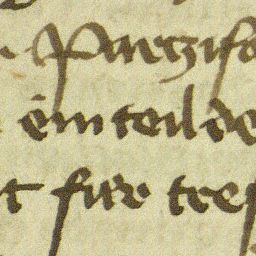 Parzifa
ein teil de
t für tref